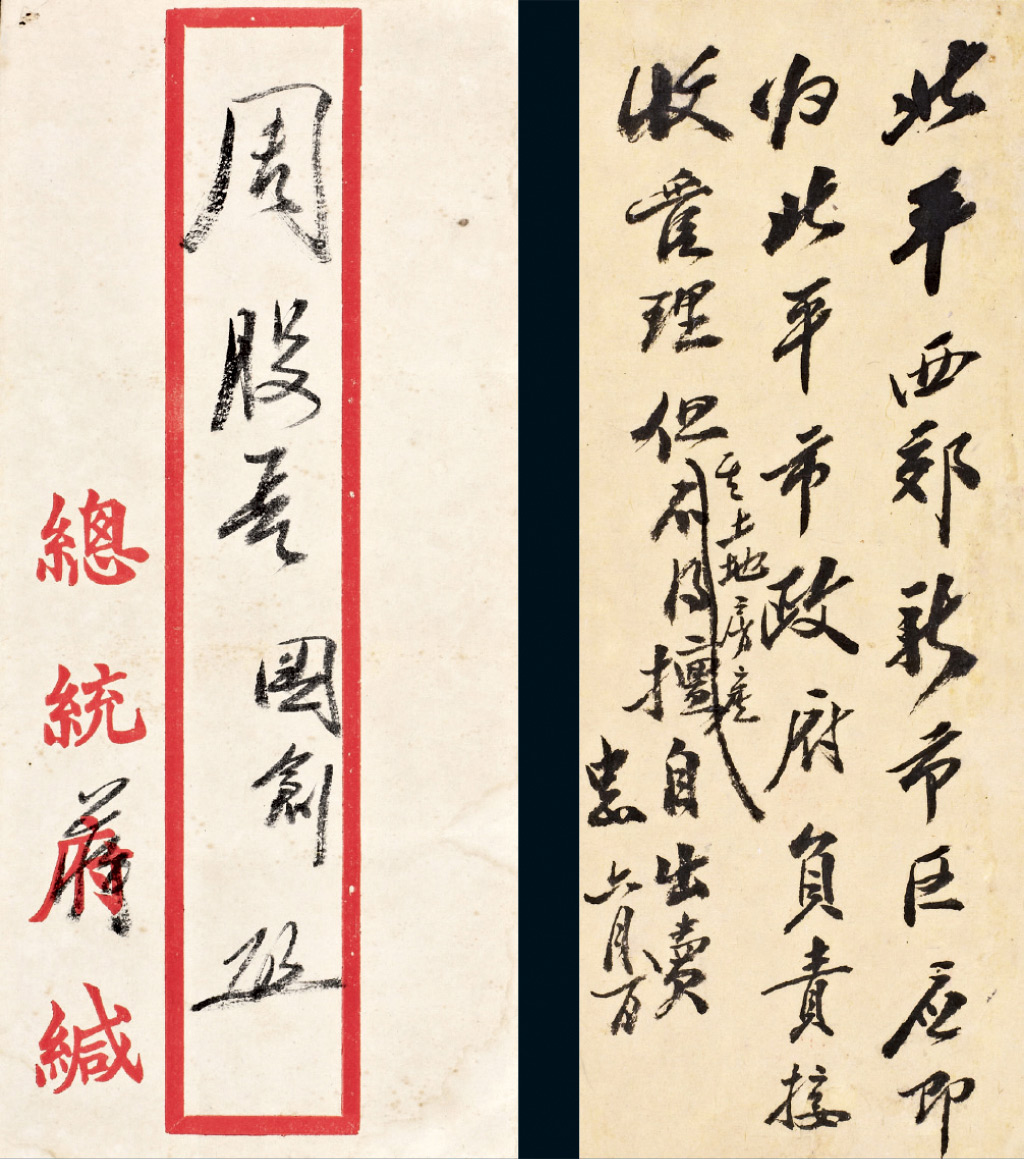 北平西郊新市区应即
归北平市政府負責接
其土地房產
收管理但不得擅自出賣
中正 六月一日
周股長 國創 啟
總統府緘
蔣